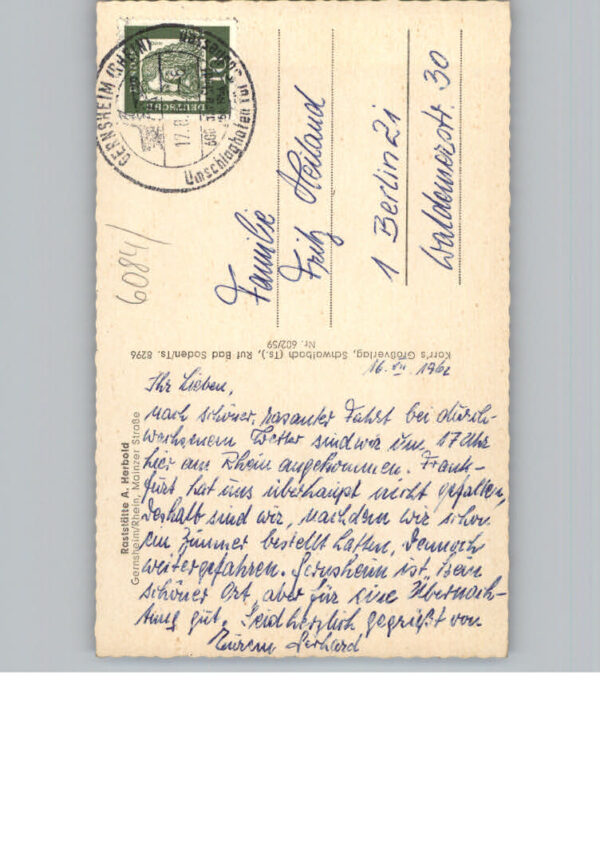 GERNSHEIM (RHEIN)
Umschlaghafen
17.8.
10
DEUTSCHE
6084/
Familie
Fritz Heiland
1 Berlin 21
Waldenserstr. 30
Korr's Größverlag, Schwalbach (Ts.), Ruf Bad Soden/Ts. 8296
Nr. 602/59
Raststätte A. Herbold
Gernsheim/Rhein, Mainzer Straße
1962
Ihr Lieben,
nach schöner, rasanter Fahrt bei durch-
wachsenem Wetter sind wir um 17 Uhr
hier am Rhein angekommen. Frank-
furt hat uns überhaupt nicht gefallen,
deshalb sind wir, nachdem wir schon
ein Zimmer bestellt hatten, dennoch
weitergefahren. Gernsheim ist kein
schöner Ort, aber für eine Übernach-
tung gut. Seid herzlich gegrüßt von
Eurem Gerhard